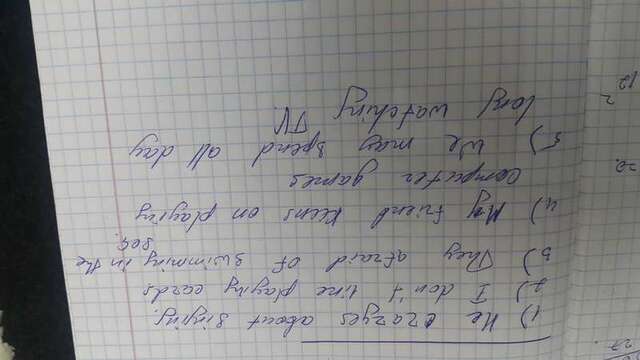 1) He crazges about singing.
2) I don't like playing cards
3) They afraid of swimming in the
sea.
4) My friend keens on playing
computer games
5) We may spend all day
long watching
TV.
27.
20.
12